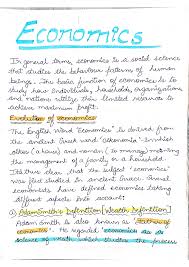 Economics
In general terms, economics is a social science
that studies the behaviour patterns of human
beings. The basic function of economics is to
study how individuals, households, organizations
and nations utilize their limited resources to
achieve maximum profit.
Evolution of economics
The English word 'Economics' is derived from
the ancient Greek word 'oikonomia' in which
oikos (a house) and nemein (to manage) meaning
the management of a family in a household.
It is thus clear, that the subject 'economics'
was first studied in ancient Greece. Several
economists have defined economics taking
different aspects into account:
Adam Smith's Definition (Wealth Definition)
Adam Smith is also known as 'Father of
economics'. He regarded 'economics as a
science of wealth' which studies the process